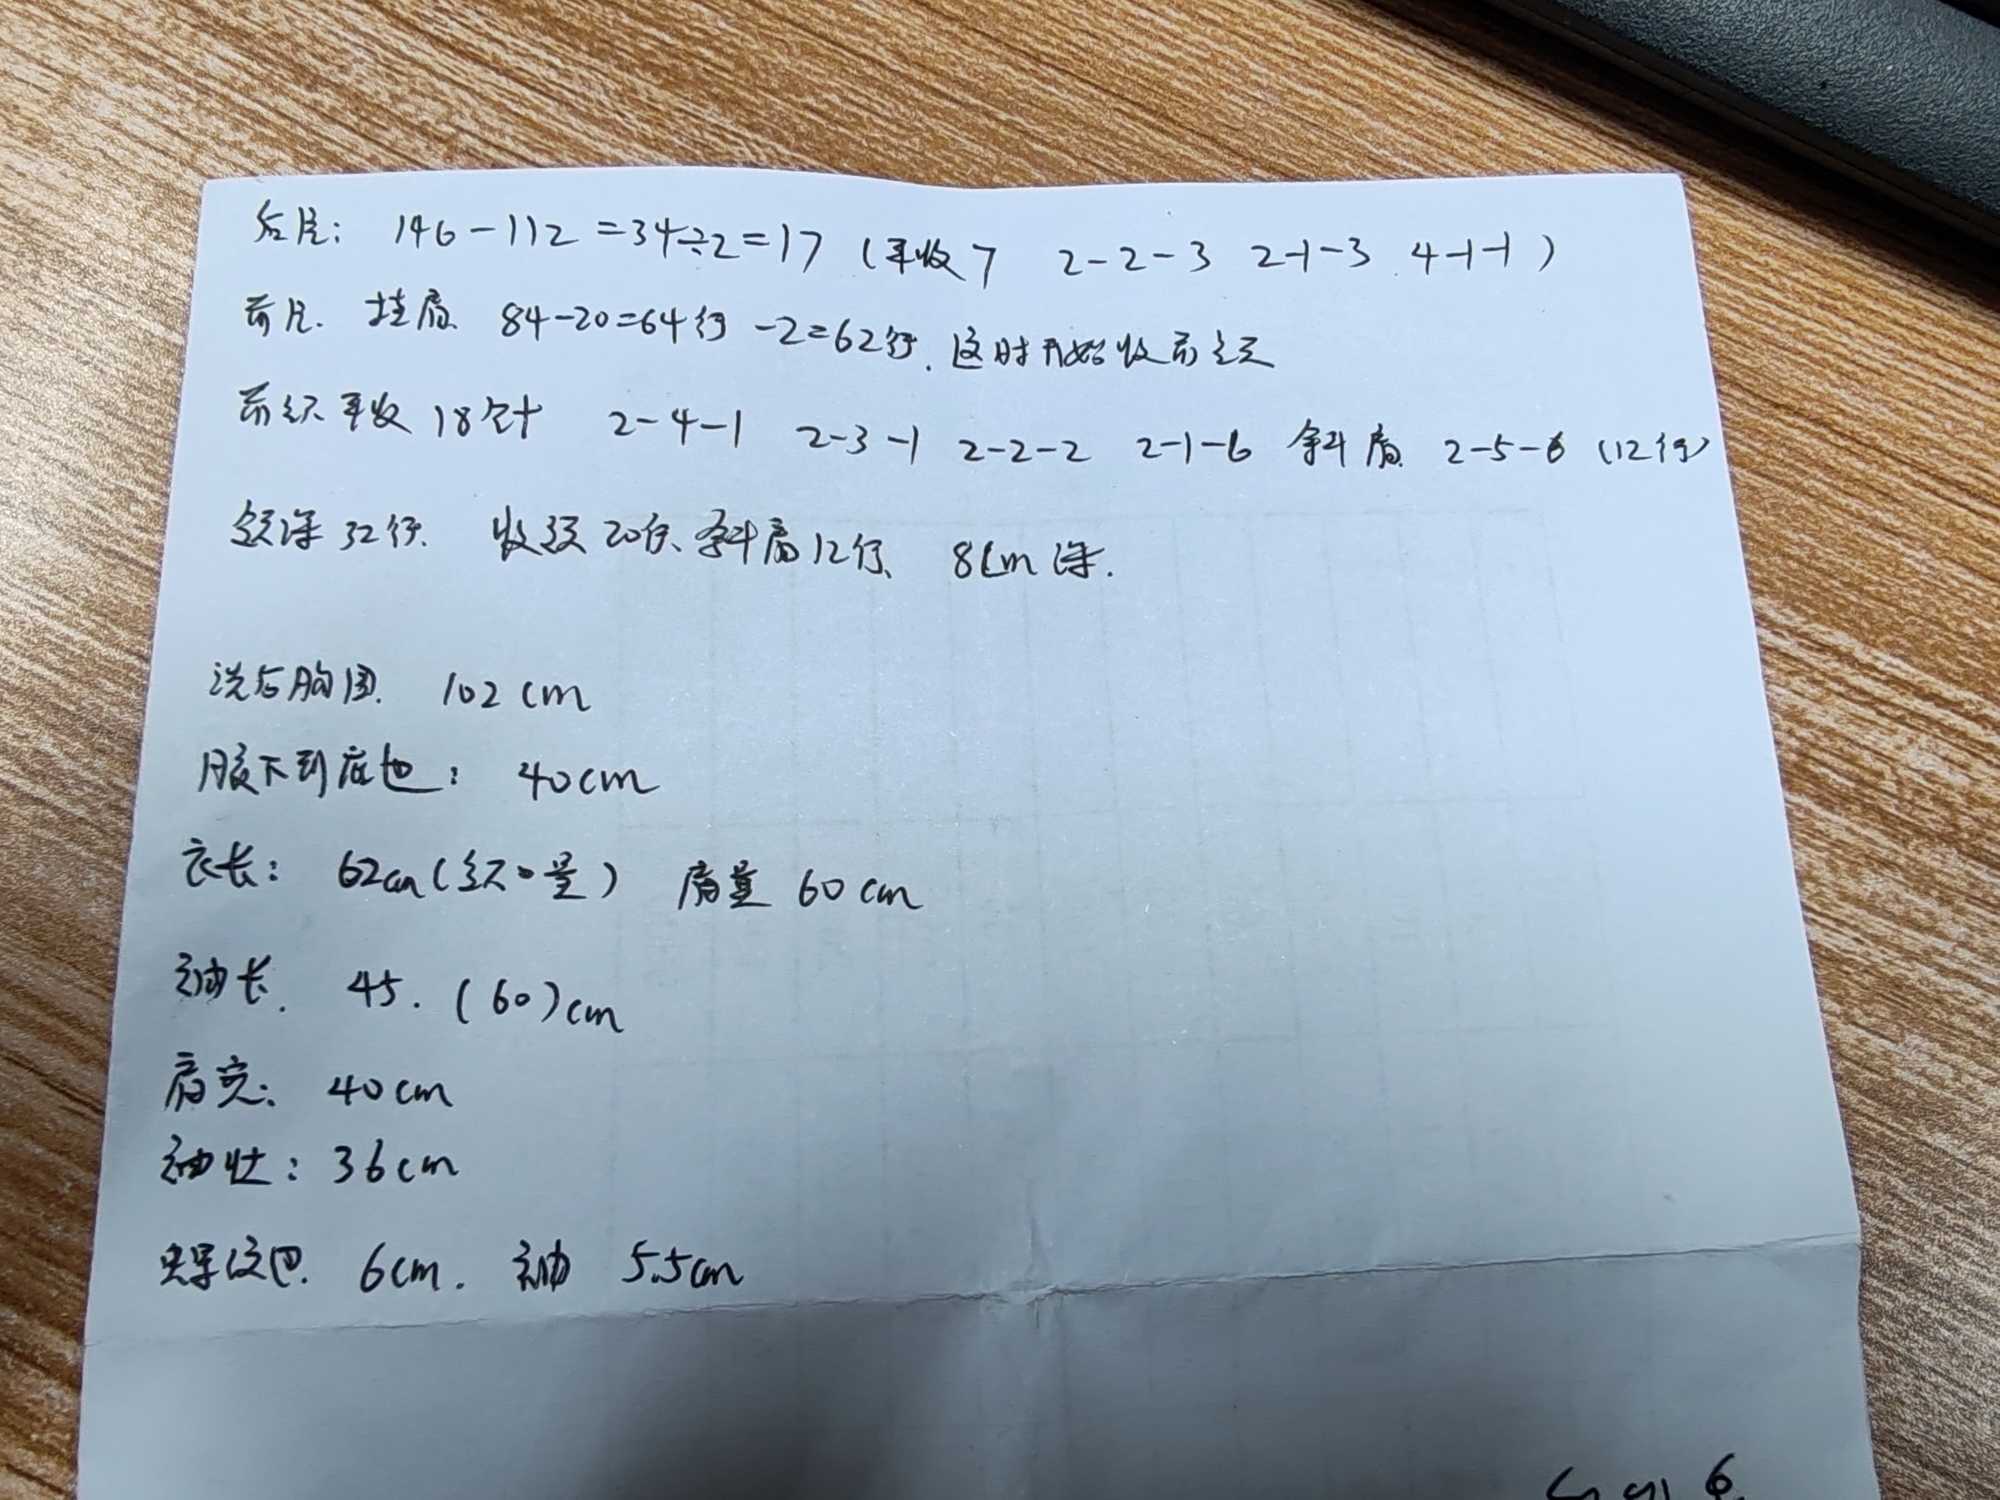 后片: 146-112=34÷2=17 (平收7 2-2-3 2-1-3 4-1-1)
前片. 挂肩 84-20=64行 -2=62行. 这时开始收前领
前领平收18针 2-4-1 2-3-1 2-2-2 2-1-6 斜肩 2-5-6 (12行)
领深32行. 收领20行、斜肩12行、 8cm深.
洗后胸围. 102cm
腋下到底边: 40cm
衣长: 62cm(领 量) 肩量 60cm
袖长. 45. (60)cm
肩宽: 40cm
袖壮: 36cm
螺纹边. 6cm. 袖 5.5cm